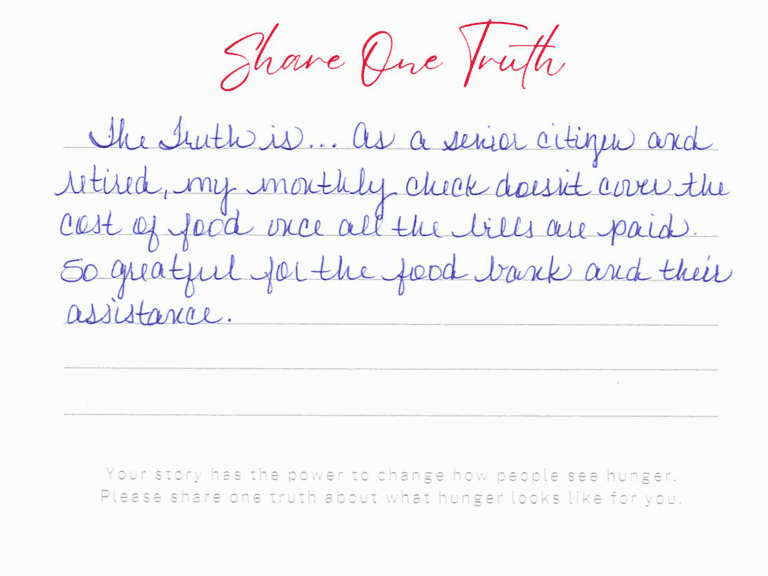 Share One Truth
The Truth is... As a senior citizen and
retired, my monthly check doesn't cover the
cost of food once all the bills are paid.
So greatful for the food bank and their
assistance.
Your story has the power to change how people see hunger.
Please share one truth about what hunger looks like for you.